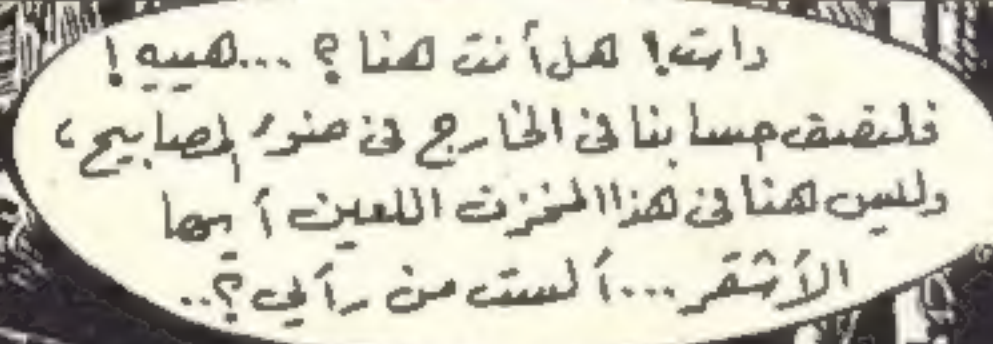 دانت! هل أنت هنا؟ ...هييه!
فلنصف حسابنا في الخارج في ضوء المصابيح،
وليس هنا في هذا المخزن اللعين أيها
الأشقر...ألست من رأيي؟..